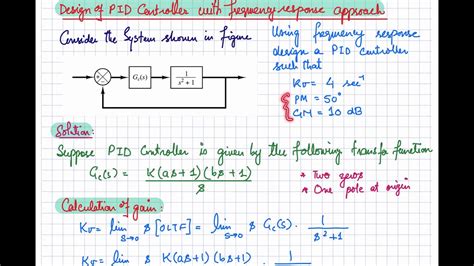 Design of PID Controller with frequency response approach
Consider the System shown in figure
Using frequency response
design a PID controller
such that
Kv = 4 sec⁻¹
PM = 50°
GM = 10 dB
Gc(s)
1/(s²+1)
Solution:
Suppose PID Controller is given by the following transfer function
Gc(s) = K(as+1)(bs+1)/s
* Two zeros
* One pole at origin
Calculation of gain:
Kv = lim s→0 s[OLTF] = lim s→0 s Gc(s) · 1/(s²+1)
Kv = lim s→0 s K(as+1)(bs+1) · 1